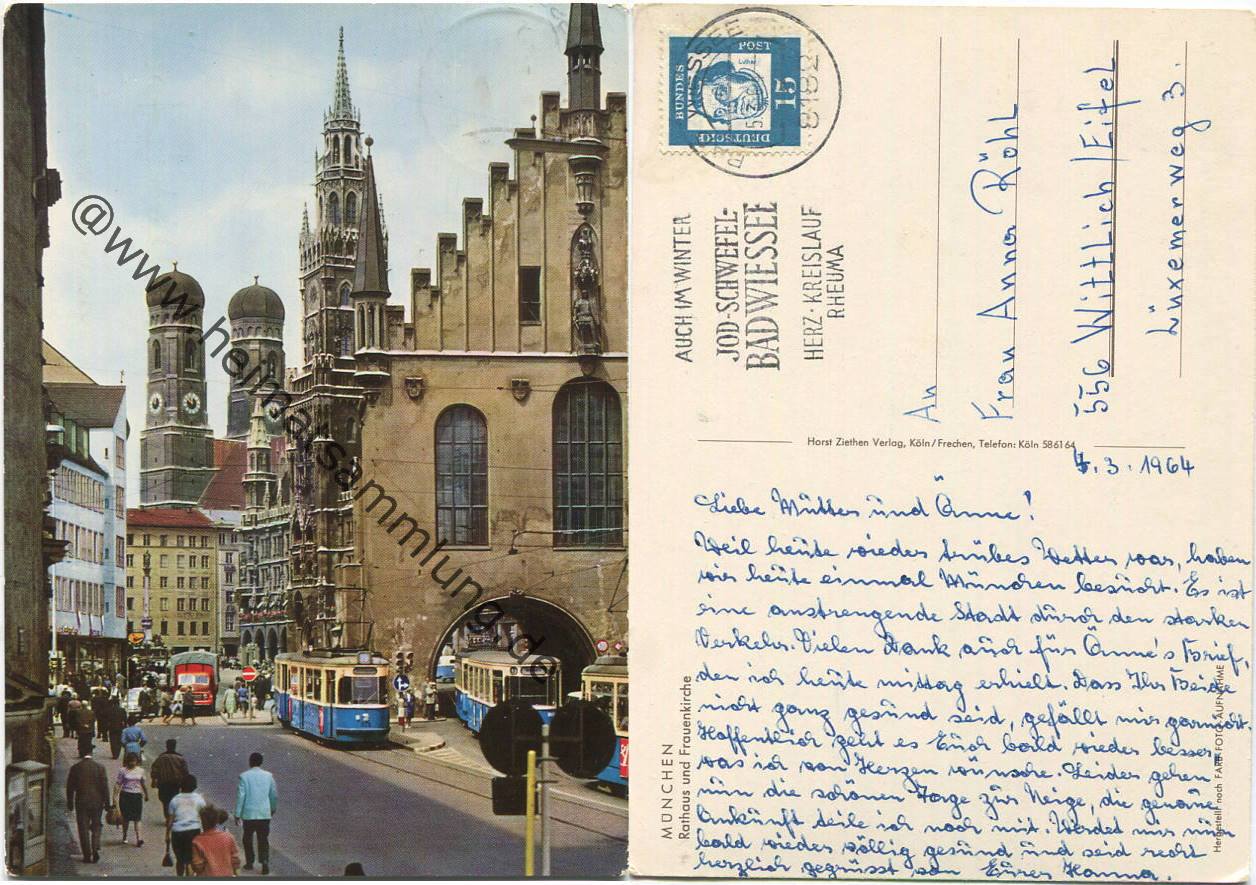 @www.heimatsammlung.de
DEUTSCHE
BUNDES
POST
Luther
15
BAD WIESSEE
8182
AUCH IM WINTER
JOD-SCHWEFEL-
BAD WIESSEE
HERZ·KREISLAUF
RHEUMA
An
Frau Anna Röhl
556 Wittlich/Eifel
Lüxemerweg 3.
Horst Ziethen Verlag, Köln/Frechen, Telefon: Köln 586164
MÜNCHEN
Rathaus und Frauenkirche
Hergestellt nach FARB-FOTO-AUFNAHME
4.3.1964
Liebe Mutter und Änne!
Weil heute wieder trübes Wetter war, haben
wir heute einmal München besucht. Es ist
eine anstrengende Stadt durch den starken
Verkehr. Vielen Dank auch für Änne's Brief,
den ich heute mittag erhielt. Dass Ihr Beide
nicht ganz gesund seid, gefällt mir garnicht.
Hoffentlich geht es Euch bald wieder besser,
was ich von Herzen wünsche. Leider gehen
nun die schönen Tage zur Neige, die genaue
Ankunft teile ich noch mit. Werdet mir nun
bald wieder völlig gesund und seid recht
herzlich gegrüsst von Eurer Hanna.